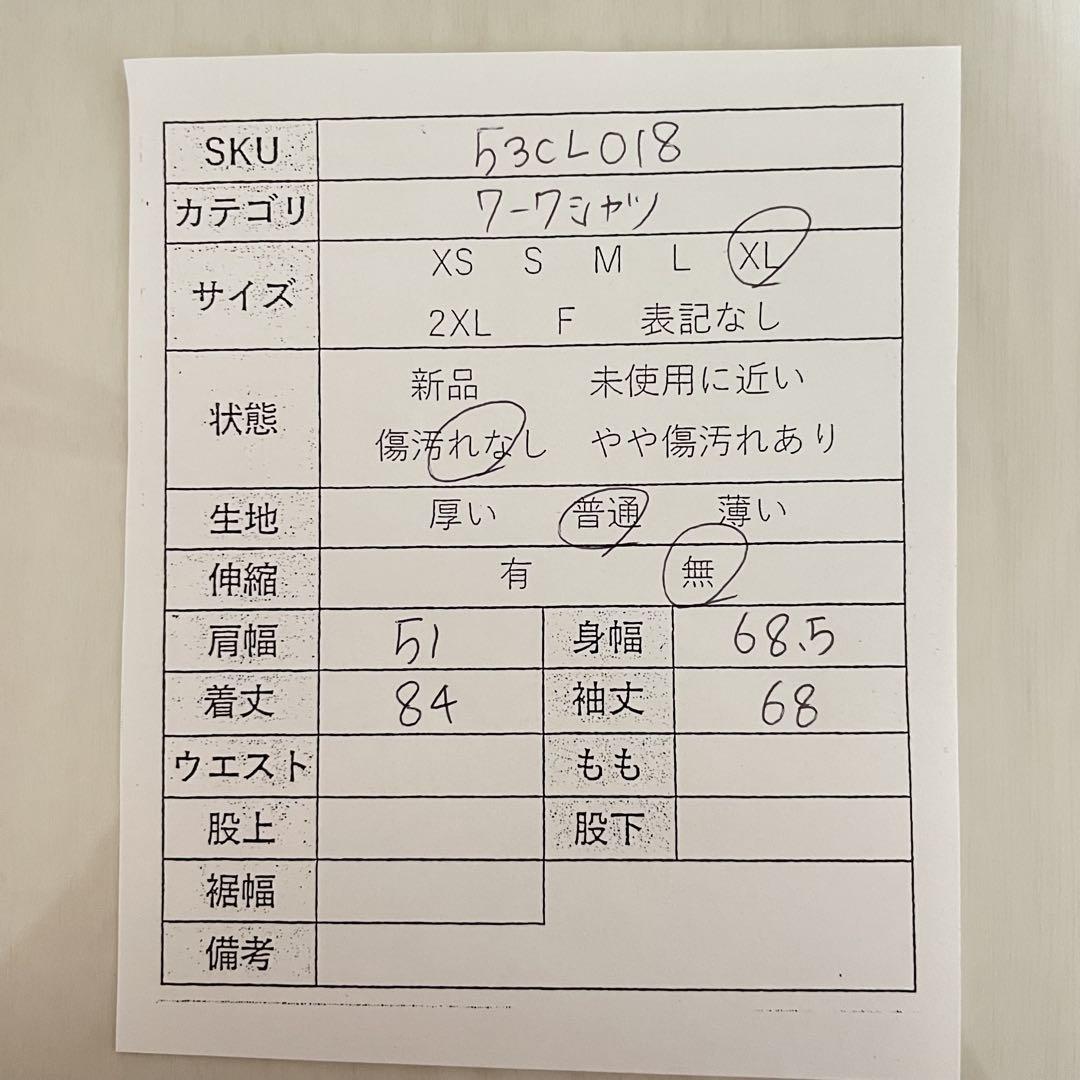 SKU 53CL018
カテゴリ ワークシャツ
サイズ XS S M L XL
2XL F 表記なし
状態 新品 未使用に近い
傷汚れなし やや傷汚れあり
生地 厚い 普通 薄い
伸縮 有 無
肩幅 51 身幅 68.5
着丈 84 袖丈 68
ウエスト もも
股上 股下
裾幅
備考